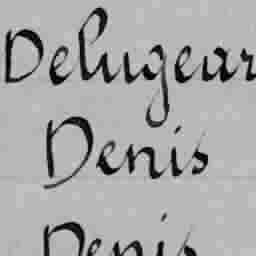 Delugear
Denis
Denis